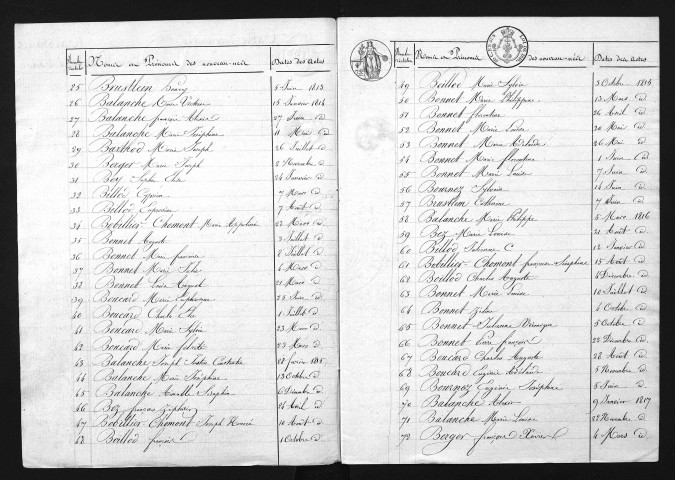 Noms et Prénoms des nouveau-nés Dates des Actes
25 Brustlein 5 Juin 1813
26 Balanche Marie 15 Janvier 1814
27 Balanche françois 27 Juin d
28 Balanche Marie Séraphine 11 Mai d
29 Barthod Marie Joseph 26 Juillet d
30 Berger Marie Joseph 2 Novembre d
31 Boy 24 Janvier d
32 Billod 7 Mars d
33 Billod 7 Août d
34 Bobillier-Chomont Marie Appoline 22 Mars d
35 Bonnet Auguste 3 Juillet d
36 Bonnet Marie 8 Juillet d
37 Bonnet Marie Julie 6 Mars d
38 Bonnet Louis August 21 Mars d
39 Boucard Marie Euphrosine 25 Juin d
40 Boucard Charles 1 Juillet d
41 Boucard Marie Sylvie 23 Mars d
42 Boucard Marie félicité 23 Mars d
43 Balanche Joseph 28 février 1815
44 Balanche Marie Séraphine 13 Octobre d
45 Balanche Séraphin 6 Décembre d
46 Boz françois Zéphirin 24 Avril d
47 Bobillier-Chomont Joseph 10 Août d
48 Boillod françois 1 Octobre d
Noms et Prénoms des nouveau-nés Dates des Actes
49 Boillod Marie Sylvie 3 Octobre 1815
50 Bonnet Marie Philippine 13 Mars d
51 Bonnet florentine 26 Avril d
52 Bonnet Marie Louise 30 Mai d
53 Bonnet Marie Adelaide 26 Mai d
54 Bonnet Marie florentine 1 Juin d
55 Bonnet Marie Louise 7 Juin d
56 Bournez Sylvain 14 Juin d
57 Brustlein Catherine 7 Juin d
58 Balanche Marie Philippe 5 Mars 1816
59 Bez Marie Louise 21 Août d
60 Billod Julienne C 12 Janvier d
61 Bobillier-Chomont françoise Séraphine 15 Août d
62 Boillod Charles Auguste 6 Décembre d
63 Bonnet Marie Louise 10 Juillet d
64 Bonnet 4 Octobre d
65 Bonnet Julienne Véronique 5 Octobre d
66 Bonnet Pierre françois 22 Décembre d
67 Boucard Charles Auguste 28 Août d
68 Bouchre Eugénie Adelaide 5 Novembre d
69 Bournez Eugénie Séraphine 8 Juin d
70 Balanche 9 Janvier 1817
71 Balanche Marie Louise 22 Novembre d
72 Berger françois Xavier 4 Mars d